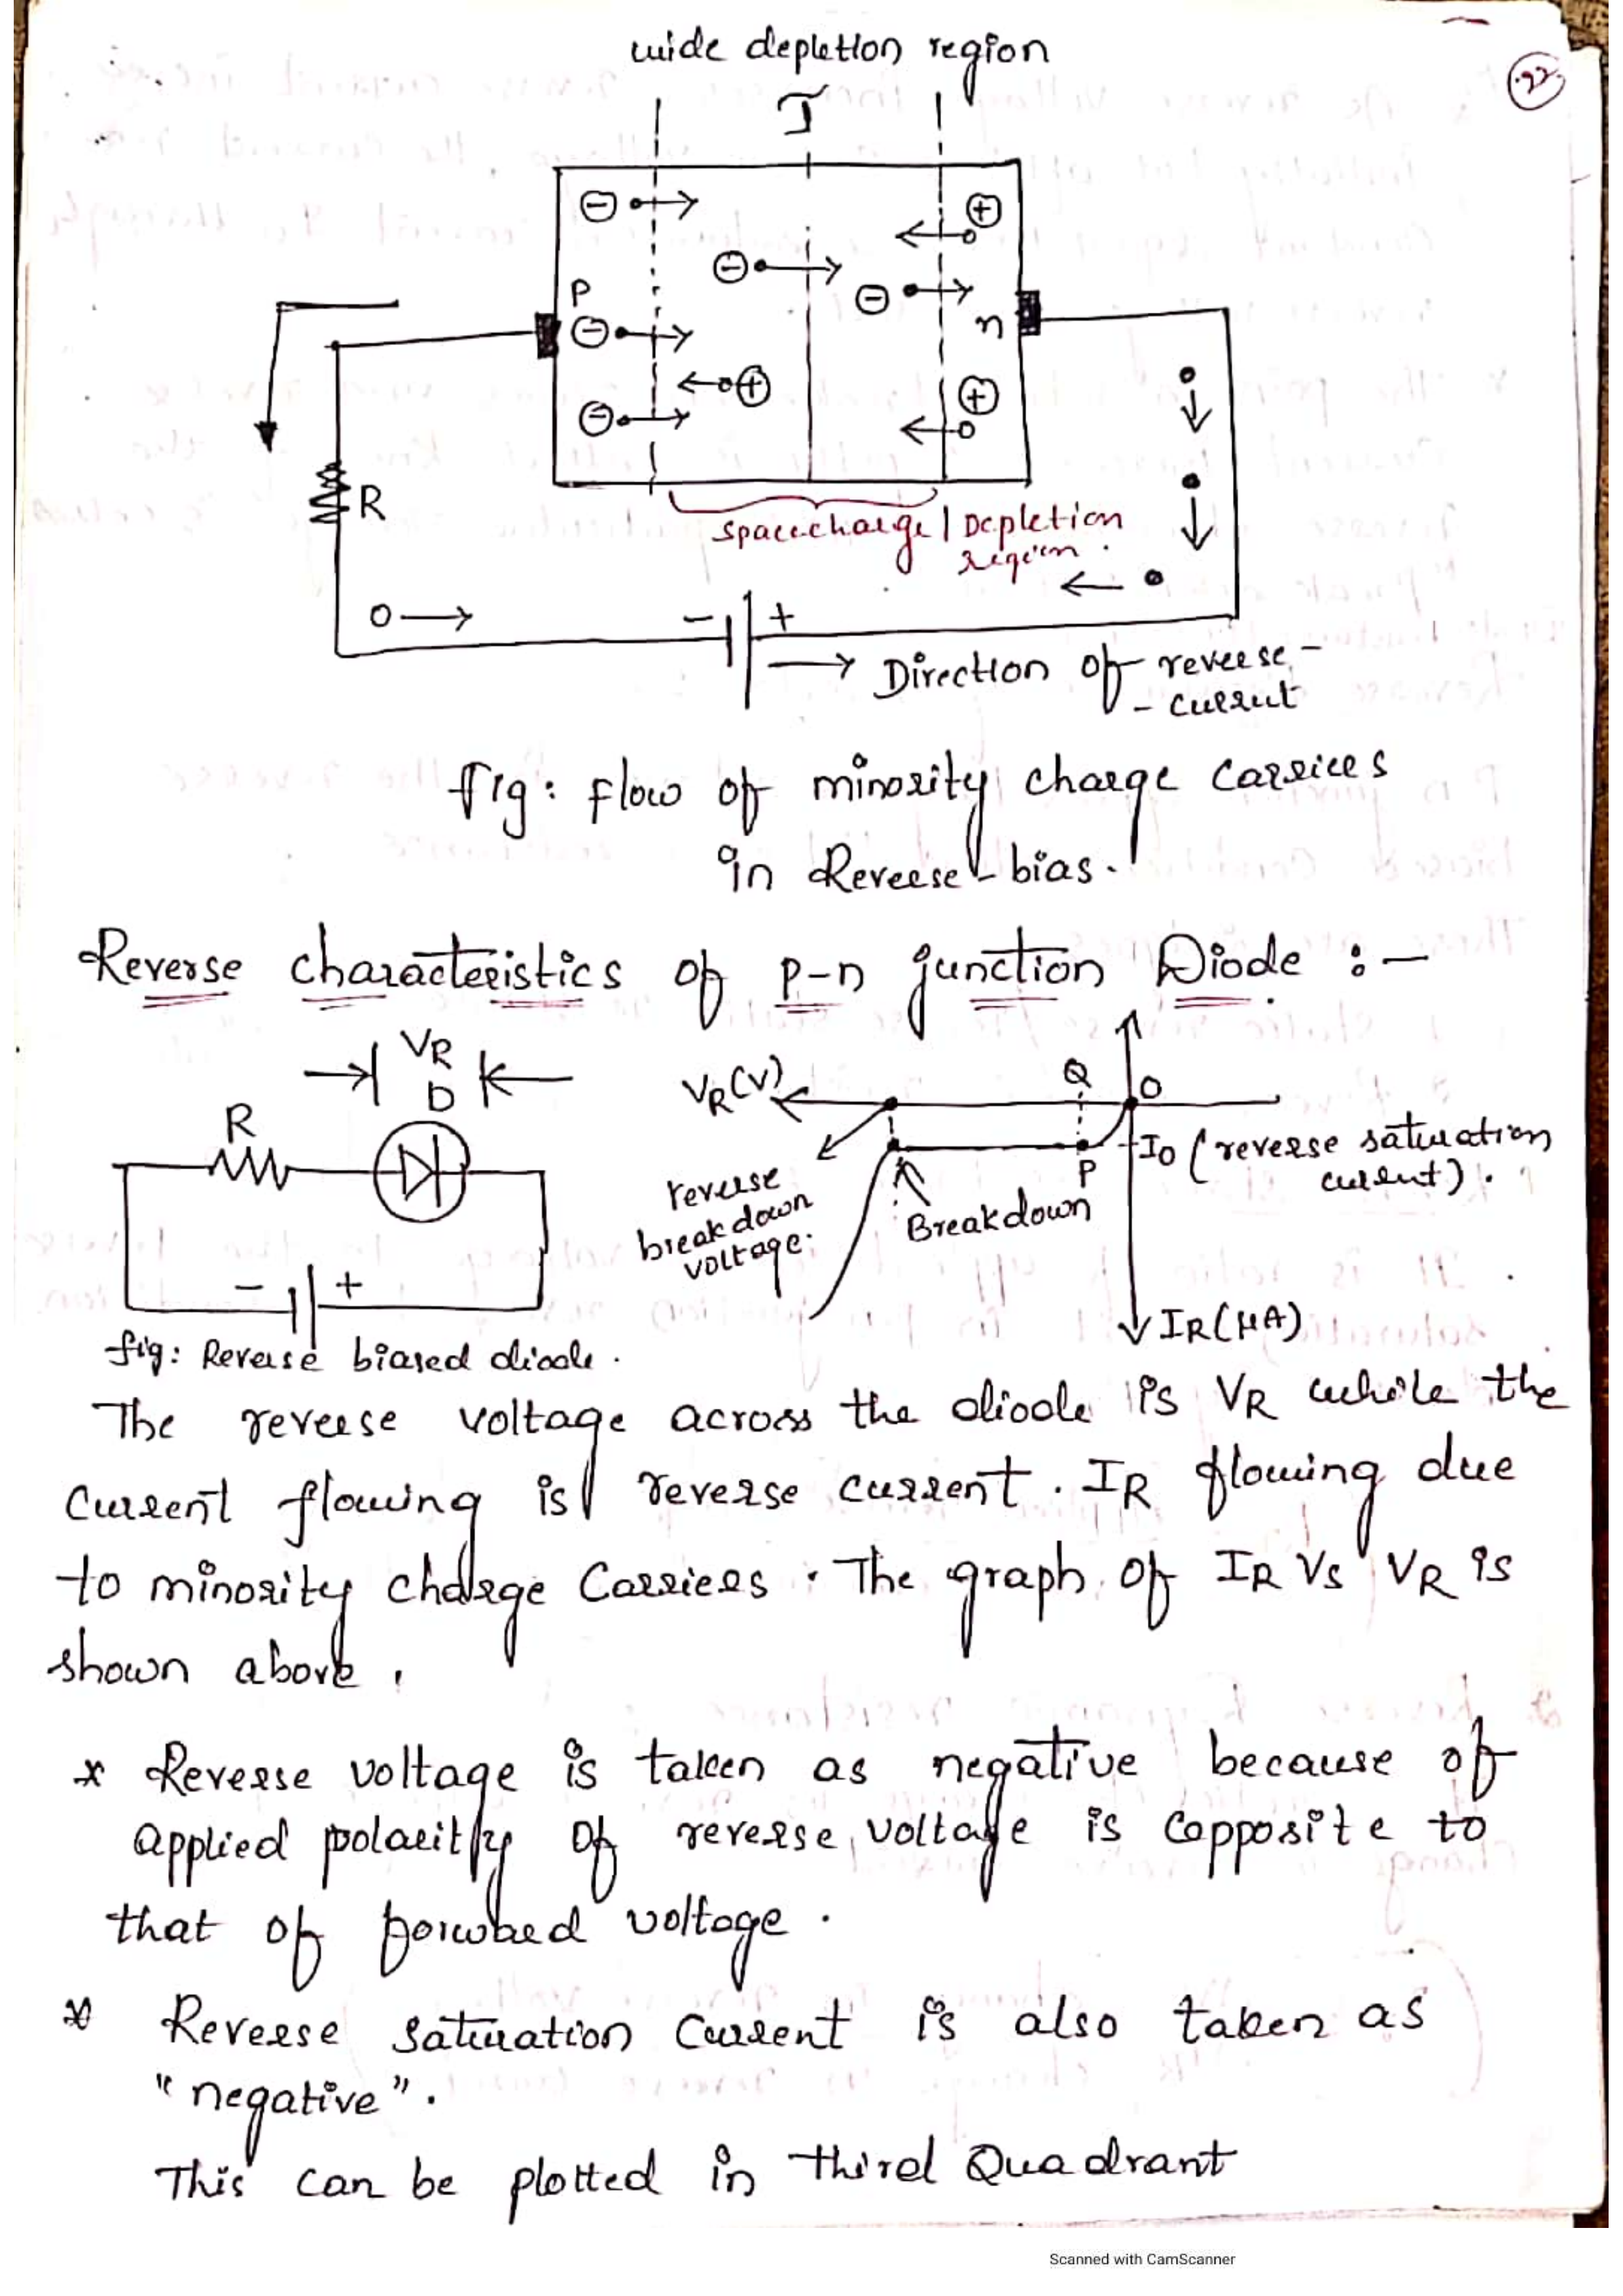 wide depletion region
22
J
P
n
R
spacecharge / Depletion
region.
- +
Direction of reverse -
- current
fig: flow of minority charge carriers
in Reverse bias.
Reverse characteristics of p-n junction Diode :-
VR
D
R
- +
fig: Reverse biased diode.
VR(V)
Q
O
P
I0 (reverse saturation
current).
reverse
breakdown
voltage.
Breakdown
IR(μA)
The reverse voltage across the diode is VR while the
Current flowing is reverse current. IR flowing due
to minority charge Carriers. The graph of IR Vs VR is
shown above.
* Reverse voltage is taken as negative because of
applied polarity of reverse voltage is opposite to
that of forward voltage.
* Reverse saturation Current is also taken as
"negative".
This can be plotted in third Quadrant
Scanned with CamScanner